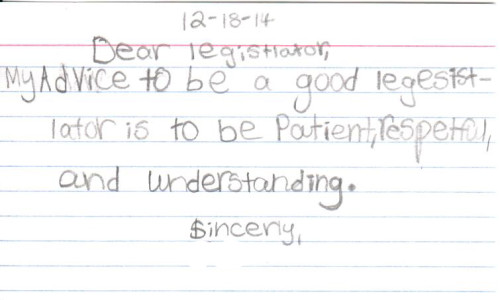 12-18-14
Dear legistlator,
My AdVice to be a good legesist-
lator is to be Patient, respetful,
and understanding.
Sincerly,